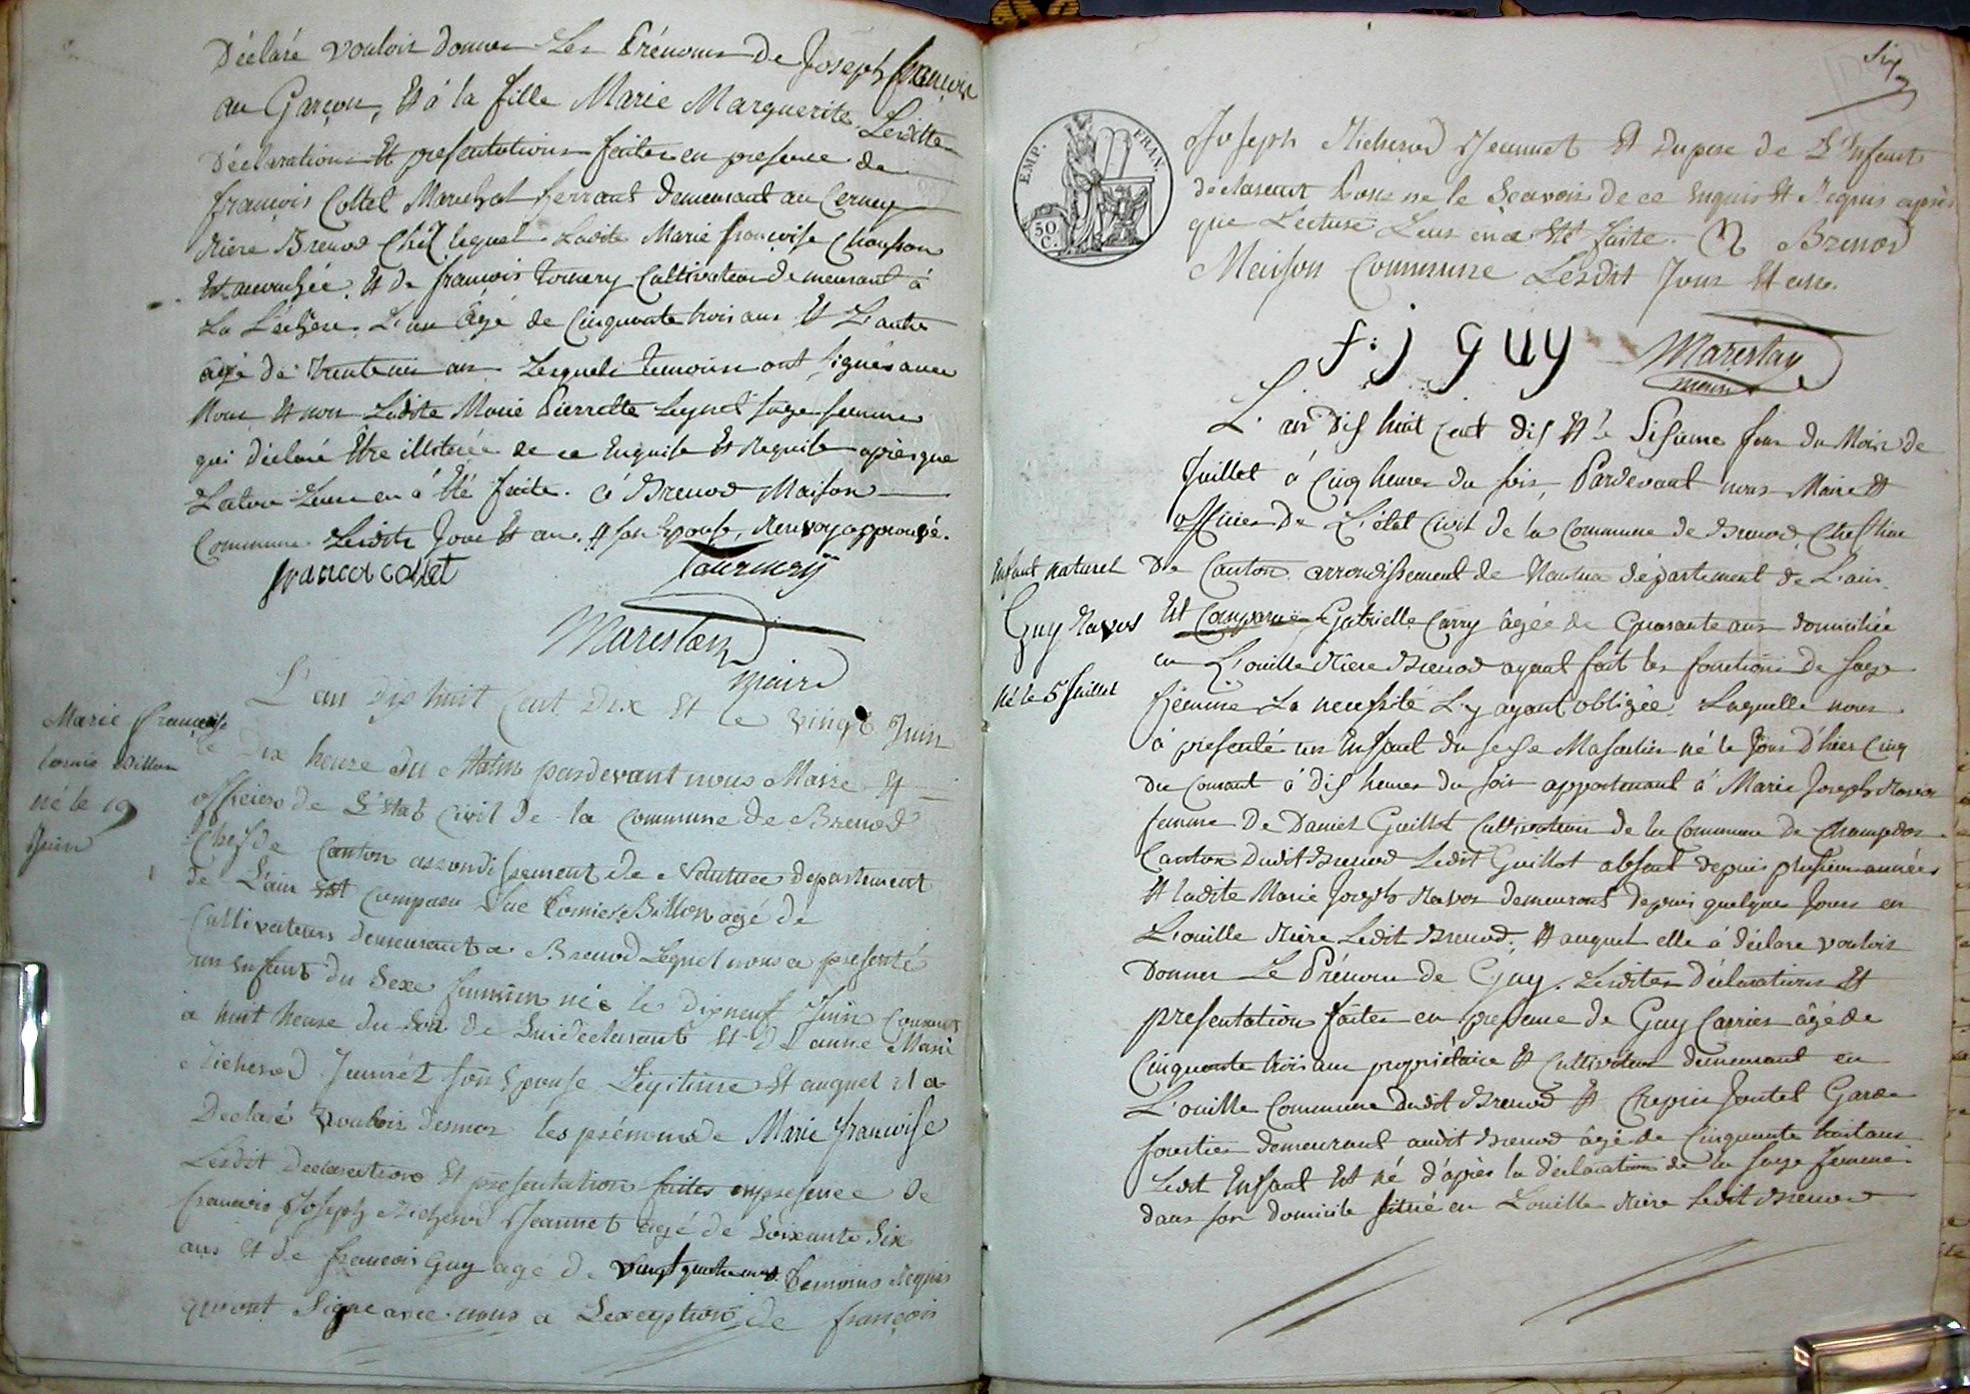 Déclaré vouloir donner Les Prénoms de Joseph françois
au Garçon, Et à la fille Marie Marguerite. Lesdittes
Déclaration Et presentations faites en presence de
françois Collet Marechal ferrant demeurant au Cerney
Rière Brenod Chez lequel Ladite Marie françoise
Est accouchée. Et de françois Tournery Cultivateur demeurant à
La L'un âgé de Cinquante trois ans Et L'autre
agé de ans Lesquels temoins ont signés avec
Nous Et non Ladite Marie Pierrette sage femme
qui déclaré Etre illiterée de ce Enquise Et Requise après que
Lecture Leur en a Eté faite. à Brenod Maison
Commune Lesdits Jour Et an. Et son Epouse, Renvoy approuvé.
francoi collet Tournery
Marestan
maire
L'an dix huit Cent Dix Et le vingt Juin
Marie françoise
Billon
né le 19
Juin
à Dix heure du Matin pardevant nous Maire Et
officiers de L'Etat Civil de la Commune de Brenod
Chef de Canton arrondissement de Nantua departement
de L'ain Est Comparu Luc Billon agé de
Cultivateur demeurant a Brenod Lequel nous a presenté
un Enfant du Sexe feminin né le dixneuf Juin Courant
a huit heure du Soir de Lui declarant Et De anne Marie
Richerod Jeannet son Epouse Légitime Et auquel il a
Declaré Vouloir donner les prénoms de Marie françoise
Lesdit Declaration Et presentation faites en presence de
francois Joseph Richerod Jeannet agé de Soixante Six
ans Et de francois Guy agé de vingt quatre ans temoins Requis
qui ont Signe avec nous a Lexeption de françois
Six
EMP. FRAN.
50 C.
Joseph Richerod Jeannet Et du pere de L'Enfant
declarant Pour ne le Scavoir de ce Enquis Et Requis après
que Lecture Leur en a Eté faite. à Brenod
Maison Commune Lesdit Jour Et an.
f. j guy Marestan
maire
L'an Dix huit Cent dix Et le Sixieme Jour du Mois de
Juillet à Cinq heures du soir, Pardevant nous Maire Et
officier de L'état Civil de la Commune de Brenod, Chef lieu
De Canton arrondissement de Nantua département de L'ain
Enfant naturel
Guy Ravos
Né le 5 Juillet
Est Comparue Gabrielle Carry âgée de Quarante ans domiciliée
en L'ouille Rière Brenod ayant fait les fonctions de sage
femme La necessité L'y ayant obligée. Laquelle nous
à presenté un Enfant du sexe Masculin né le Jour D'hier Cinq
du Courant à dix heures du soir appartenant à Marie Joseph Ravos
femme De Daniel Guillot Cultivateur de la Commune de Champdor
Canton Dudit Brenod Ledit Guillot absent depuis plusieurs années
Et ladite Marie Joseph Ravos demeurant depuis quelques Jours en
L'ouille Rière Ledit Brenod. Et auquel elle à déclaré vouloir
Donner Le Prénom de Guy. Lesdites Déclarations Et
presentation faites en presence de Guy Carrier âgé de
Cinquante trois ans propriétaire Et Cultivateur demeurant en
L'ouille Commune dudit Brenod Et Crepin Jantet Garde
forestier demeurant audit Brenod âgé de Cinquante huit ans
Ledit Enfant Est né d'après la déclaration de la sage femme
dans son domicile situé en L'ouille Rière Ledit Brenod